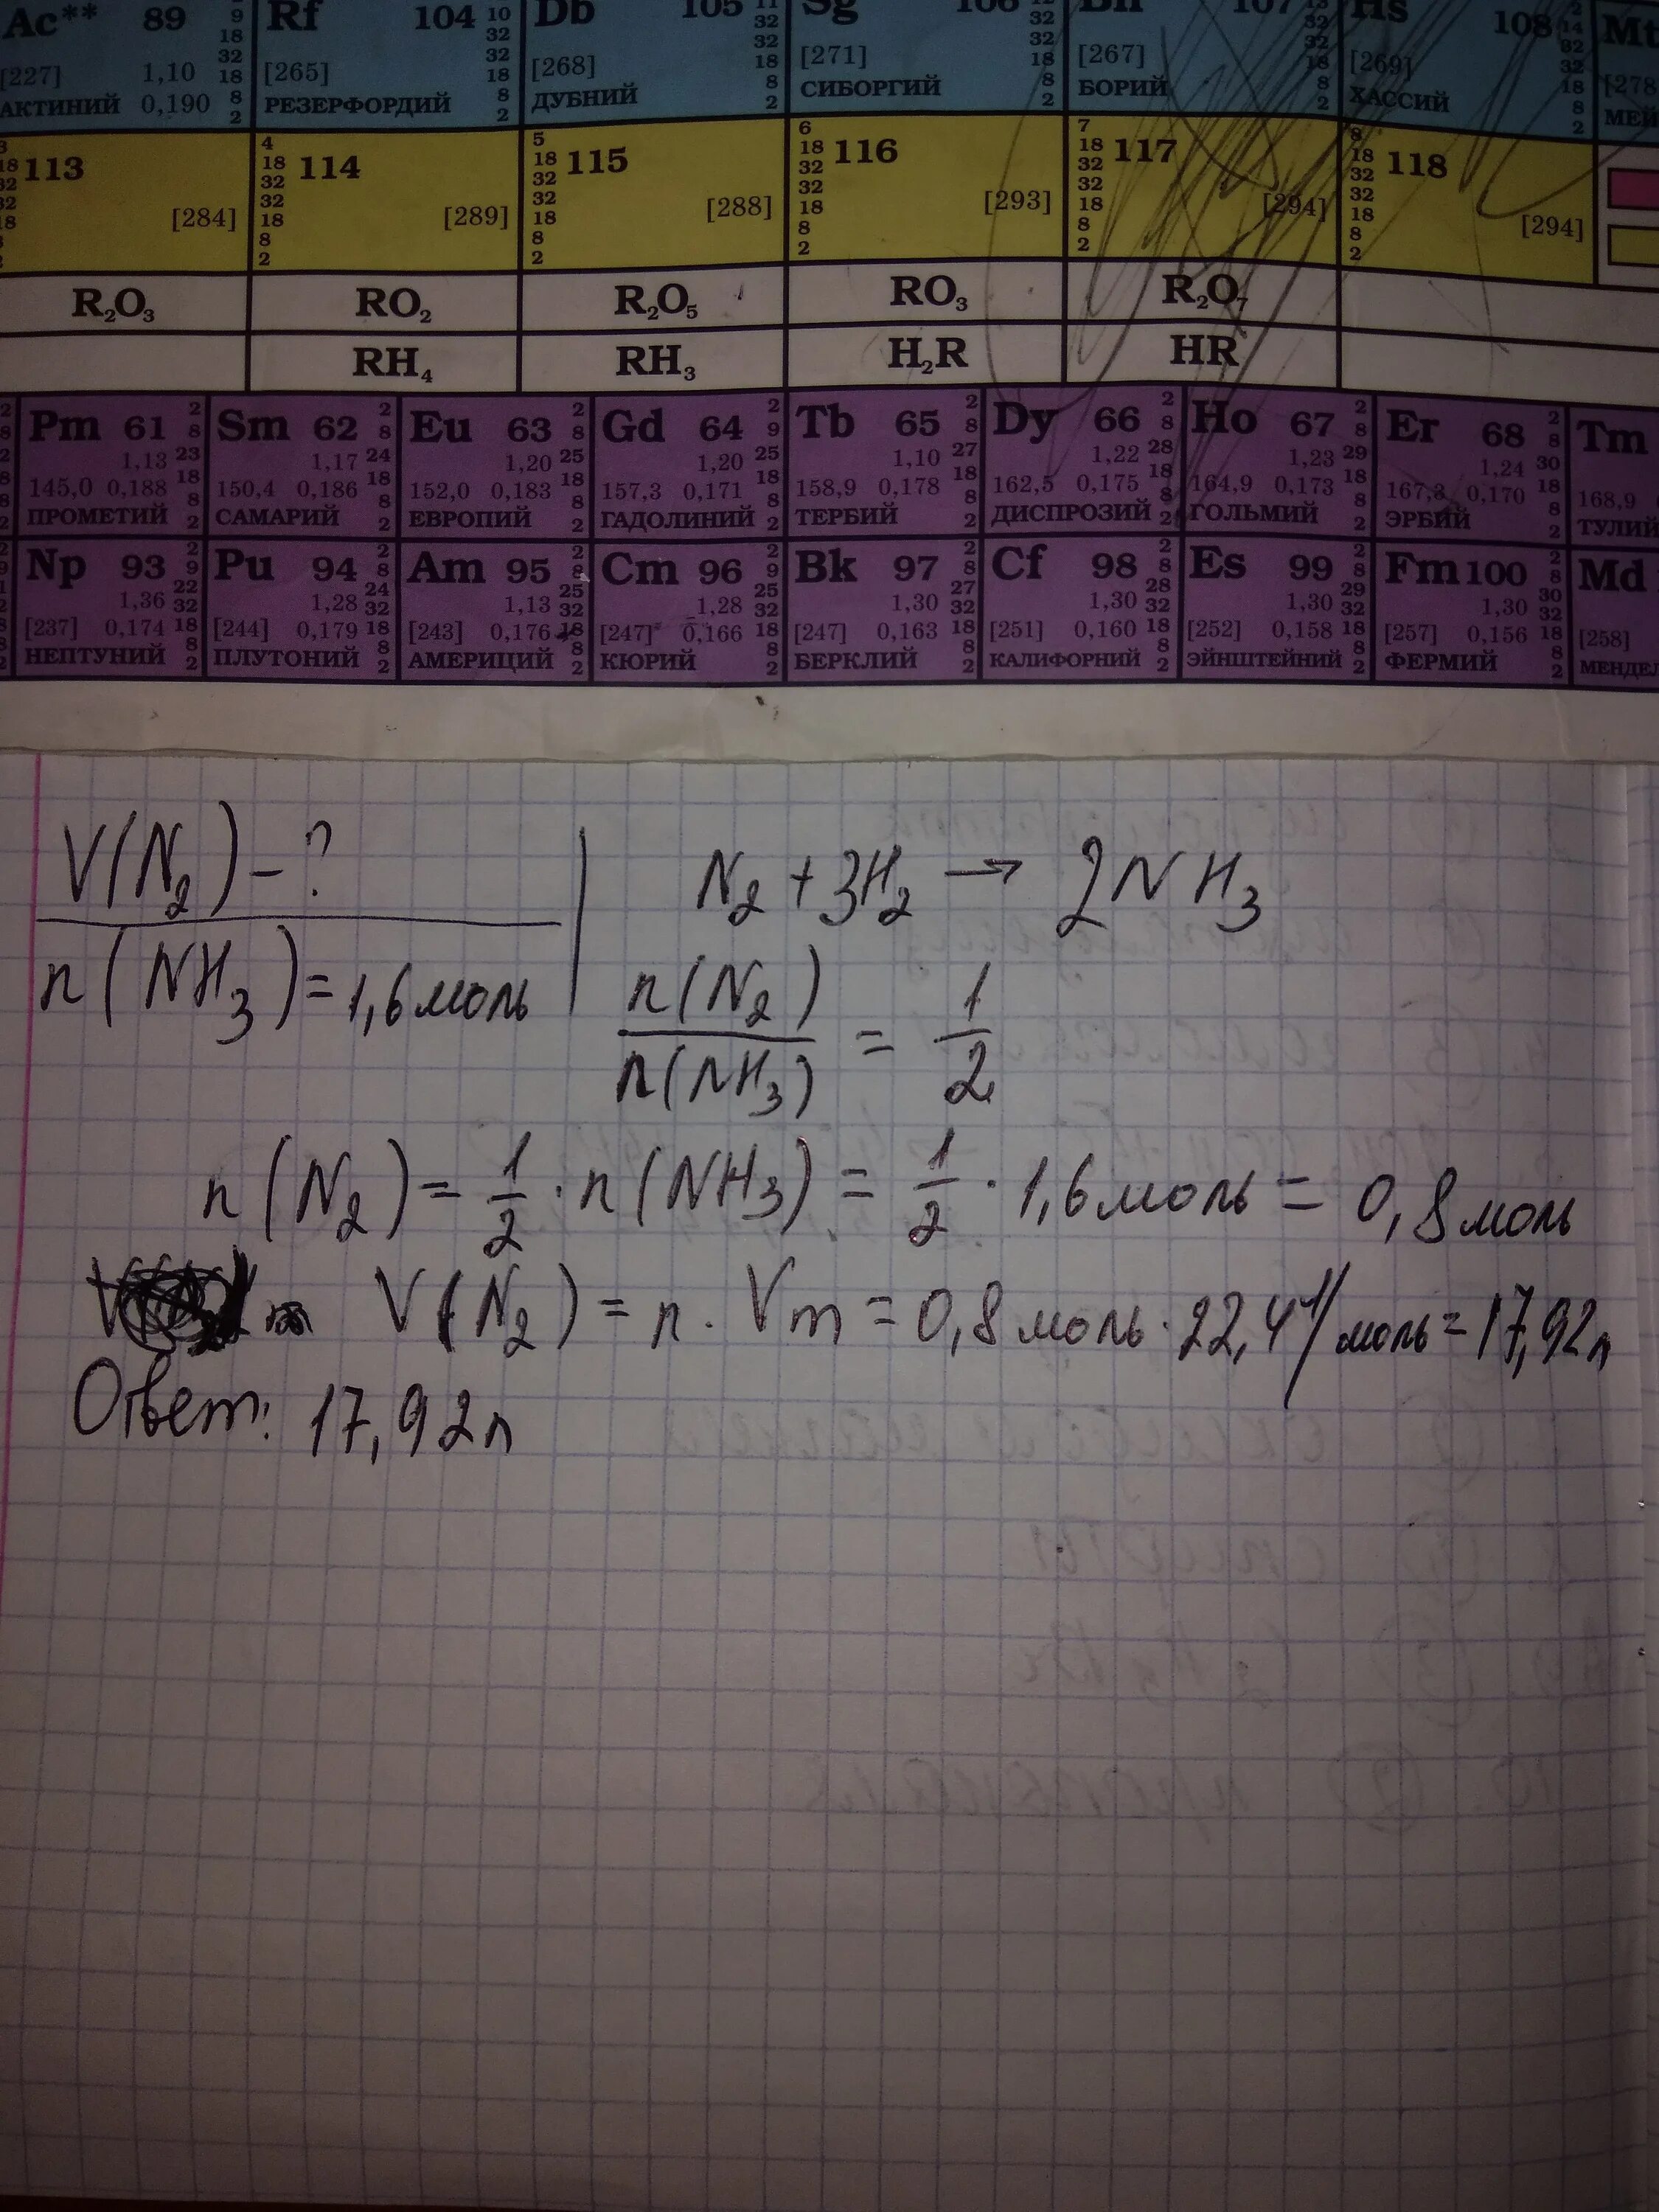 Ac** 89 9 18 32 18 8 2 Rf 104 10 32 32 18 8 2 Db 105 11 32 32 18 8 2 Sg 106 12 32 32 18 8 2 Bh 107 13 32 32 18 8 2 Hs 108 14 32 32 18 8 2 Mt
[227] 1,10 [265] [268] [271] [267] [269] [278
АКТИНИЙ 0,190 РЕЗЕРФОРДИЙ ДУБНИЙ СИБОРГИЙ БОРИЙ ХАССИЙ МЕЙ
3 18 32 32 18 8 2 113 4 18 32 32 18 8 2 114 5 18 32 32 18 8 2 115 6 18 32 32 18 8 2 116 7 18 32 32 18 8 2 117 8 18 32 32 18 8 2 118
[284] [289] [288] [293] [294] [294]
R₂O₃ RO₂ R₂O₅ RO₃ R₂O₇
RH₄ RH₃ H₂R HR
Pm 61 2 8 23 18 8 2 Sm 62 2 8 24 18 8 2 Eu 63 2 8 25 18 8 2 Gd 64 2 9 25 18 8 2 Tb 65 2 8 27 18 8 2 Dy 66 2 8 28 18 8 2 Ho 67 2 8 29 18 8 2 Er 68 2 8 30 18 8 2 Tm
1,13 1,17 1,20 1,20 1,10 1,22 1,23 1,24
145,0 0,188 150,4 0,186 152,0 0,183 157,3 0,171 158,9 0,178 162,5 0,175 164,9 0,173 167,3 0,170 168,9
ПРОМЕТИЙ САМАРИЙ ЕВРОПИЙ ГАДОЛИНИЙ ТЕРБИЙ ДИСПРОЗИЙ ГОЛЬМИЙ ЭРБИЙ ТУЛИЙ
Np 93 2 9 22 32 18 8 2 Pu 94 2 8 24 32 18 8 2 Am 95 2 8 25 32 18 8 2 Cm 96 2 9 25 32 18 8 2 Bk 97 2 8 27 32 18 8 2 Cf 98 2 8 28 32 18 8 2 Es 99 2 8 29 32 18 8 2 Fm 100 2 8 30 32 18 8 2 Md
1,36 1,28 1,13 1,28 1,30 1,30 1,30 1,30
[237] 0,174 [244] 0,179 [243] 0,176 [247] 0,166 [247] 0,163 [251] 0,160 [252] 0,158 [257] 0,156 [258]
НЕПТУНИЙ ПЛУТОНИЙ АМЕРИЦИЙ КЮРИЙ БЕРКЛИЙ КАЛИФОРНИЙ ЭЙНШТЕЙНИЙ ФЕРМИЙ МЕНДЕЛ
V(N₂) - ?
n(NH₃) = 1,6 моль
N₂ + 3H₂ → 2NH₃
n(N₂)/n(NH₃) = 1/2
n(N₂) = 1/2 · n(NH₃) = 1/2 · 1,6 моль = 0,8 моль
V(N₂) = n · Vm = 0,8 моль · 22,4 л/моль = 17,92 л
Ответ: 17,92 л